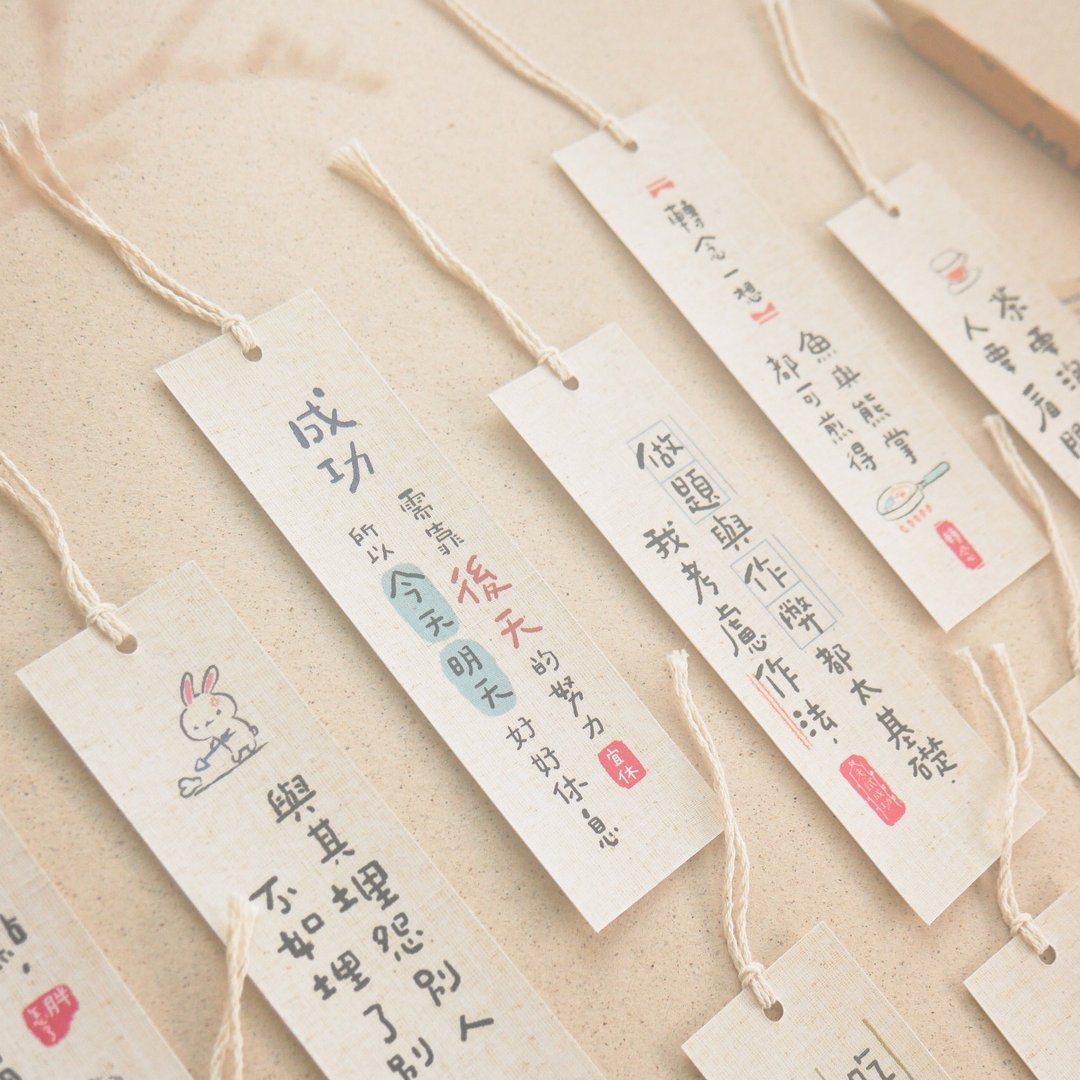 成功
需靠後天的努力
所以今天明天好好休息
宜休
做題與作弊都太基礎.
我考慮作法.
【轉念一想】
魚與熊掌
都可煎得
轉念
茶要
人要看開
與其埋怨別人
不如埋了別
怎胖了
吃